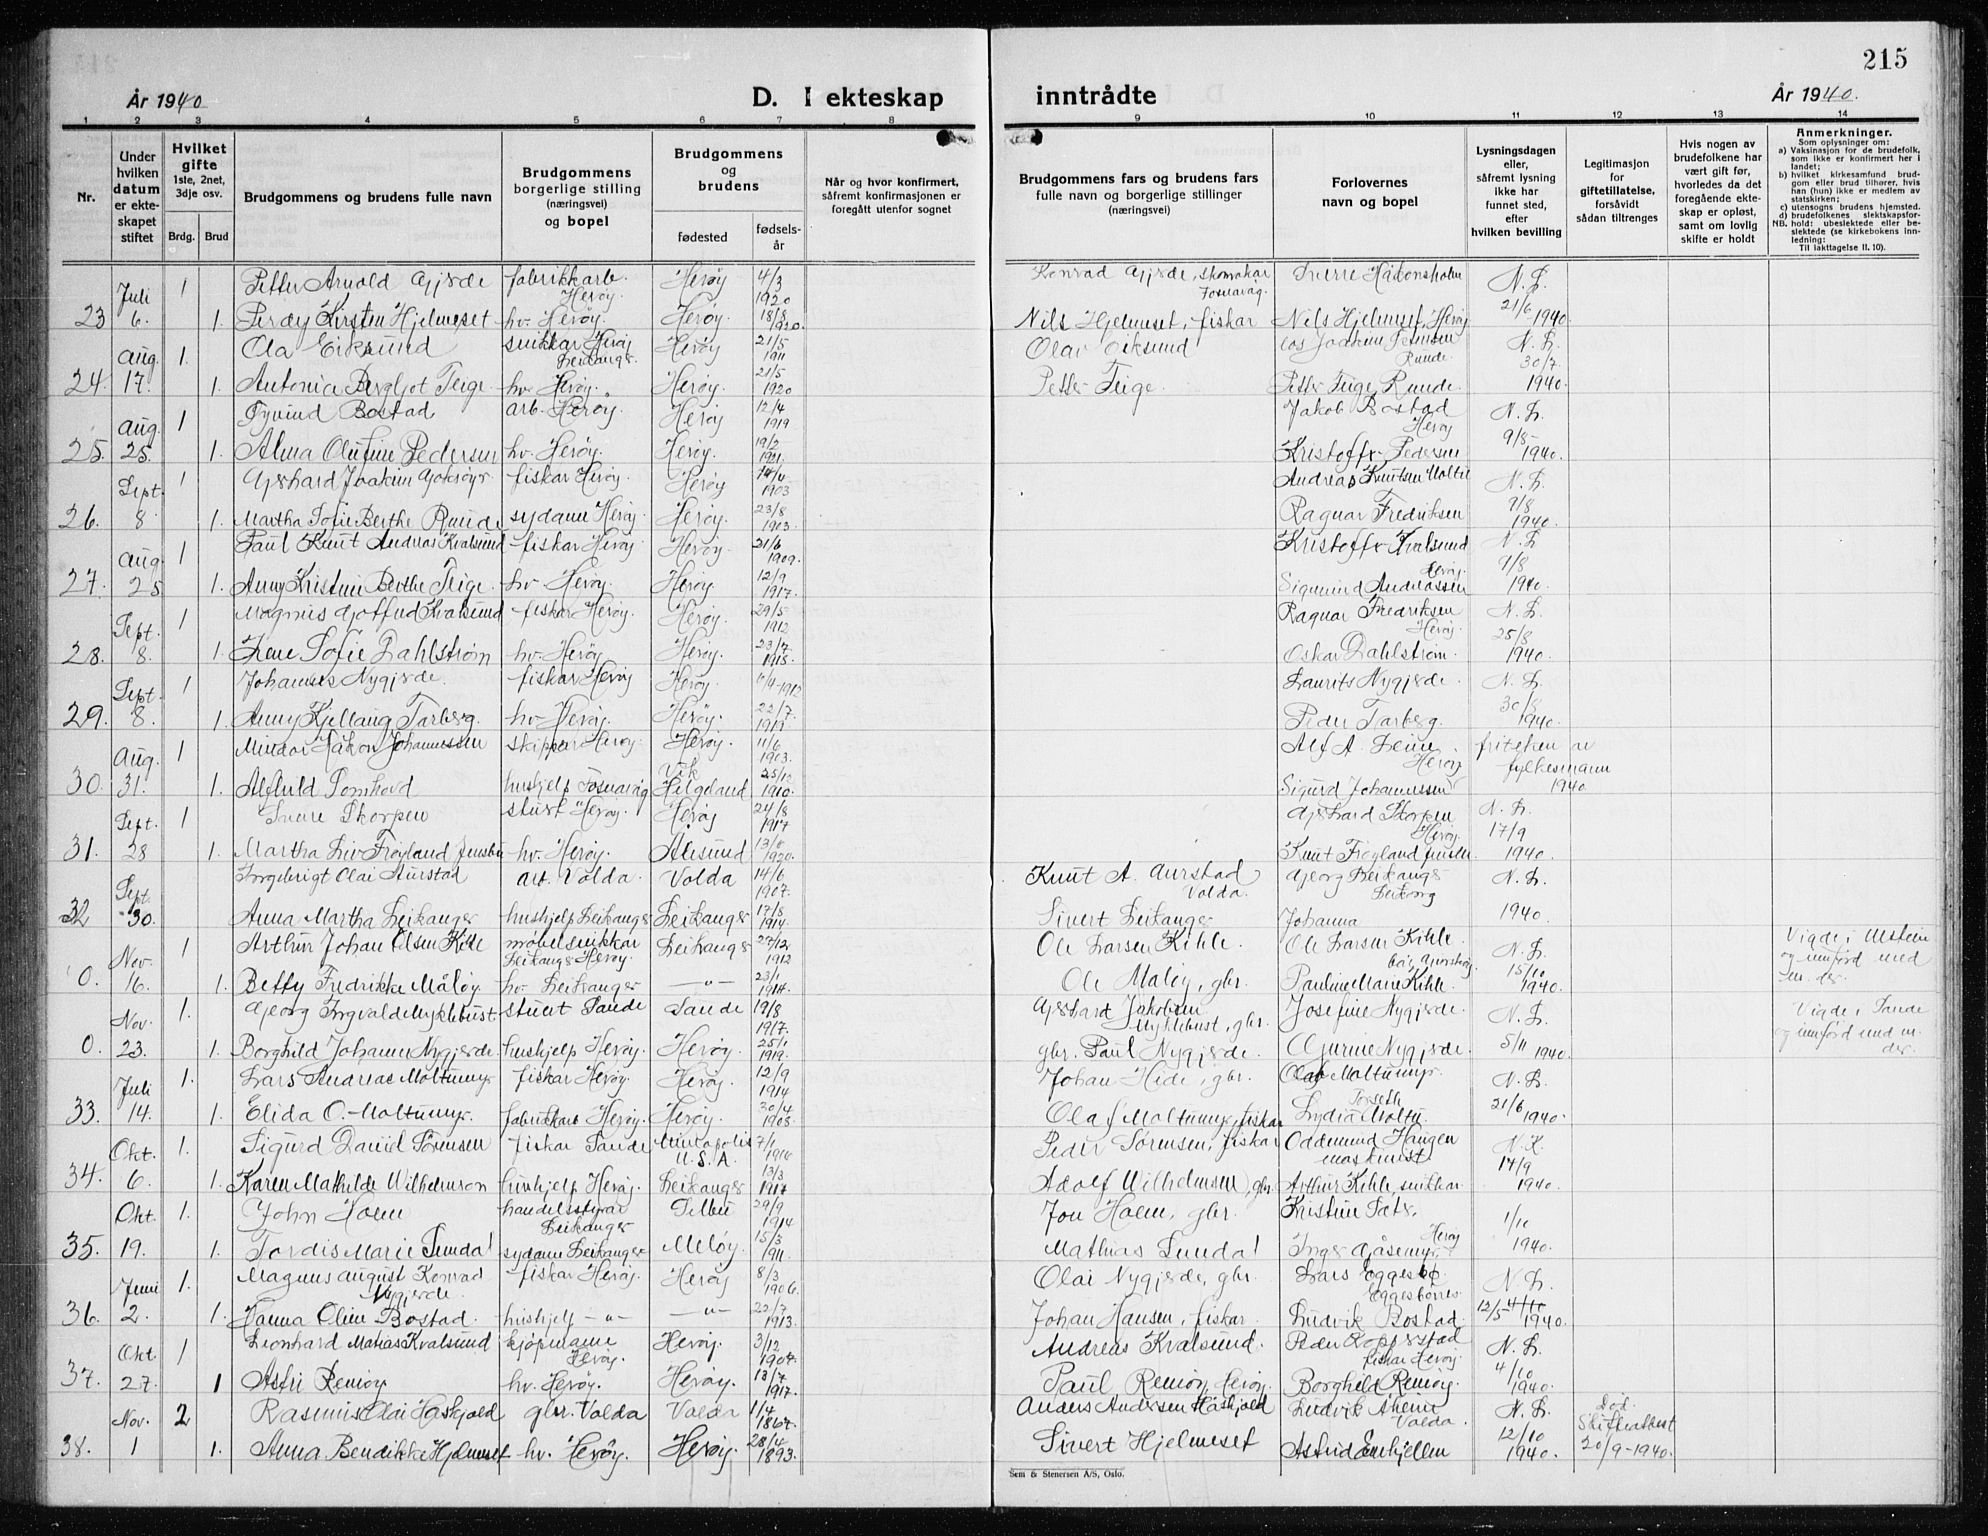 215
År 1940
D. I ekteskap inntrådte
År 1940.
1 2 3 4 5 6 7 8 9 10 11 12 13 14
Nr.
Under hvilken datum er ekteskapet stiftet
Hvilket gifte 1ste, 2net, 3dje osv.
Brdg. Brud
Brudgommens og brudens fulle navn
Brudgommens borgerlige stilling (næringsvei) og bopel
Brudgommens og brudens
fødested fødselsår
Når og hvor konfirmert, såfremt konfirmasjonen er foregått utenfor sognet
Brudgommens fars og brudens fars fulle navn og borgerlige stillinger (næringsvei)
Forlovernes navn og bopel
Lysningsdagen eller, såfremt lysning ikke har funnet sted, efter hvilken bevilling
Legitimasjon for giftetillatelse, forsåvidt sådan tiltrenges
Hvis nogen av brudefolkene har vært gift før, hvorledes da det foregående ekteskap er opløst, samt om lovlig skifte er holdt
Anmerkninger.
Som oplysning om:
a) Vaksinasjon for de brudefolk, som ikke er konfirmert her i landet;
b) hvilket kirkesamfund brudgom eller brud tilhører, hvis han (hun) ikke er medlem av statskirken;
c) utensogns brudens hjemsted.
d) brudefolkenes slektskapsforhold: ubeslektede eller beslektede (se kirkebokens innledning:
NB. Til iakttagelse II. 10).
Juli 1 Petter Arnold Gjerde fabrikkarb. Herøy. Herøy 4/3 1920 Konrad Gjerde, skomakar Fosnavåg. Sverre Håkonsholm N. L.
23 6. 1. Kirsten Hjelmeset hv. Herøy. Herøy. 18/8 1920. Nils Hjelmeset, fiskar Nils Hjelmeset, Herøy 21/6 1940.
Aug. 1. Ola Eiksund snikkar Herøy Leikanger. Herøy 21/5 1911 Olav Eiksund Joakim Runde. N. L.
24. 17. 1. Antonia Bergljot Teige. hv. Herøy. Herøy. 21/5 1920 Petter Teige. Petter Teige, Runde. 30/7 1940.
Aug. 1 Øyvind Bostad arb. Herøy. Herøy 12/4 1919 Jakob Bostad Herøy N. L.
25. 25. 1. Alma Olufine Pedersen hv. Herøy. Herøy. 19/2 1921. Kristoffer Pedersen 9/8 1940.
Sept. 1 Gjerhard Joakim fiskar Herøy. Herøy 1903 Andreas Knutsen Moltu N. L.
26. 8 1. Martha Sofie Berthe Runde sydame Herøy. Herøy. 23/8 1903. Ragnar Fredriksen 9/8 1940.
Aug. 1 Paul Knut Andreas Kvalsund fiskar Herøy Herøy. 21/6 1909. Kristoffer Kvalsund Herøy. N. L.
27. 25 1. Anny Kristine Berthe Teige. hv. Herøy. Herøy. 12/9 1917. Sigmund Andreassen 9/8 1940.
Sept. 1 Magnus Gjotfred Kvalsund fiskar Herøy. Herøy. 29/5 1912 Ragnar Fredriksen Herøy. N. L.
28. 8. 1. Lene Sofie Dahlstrøm hv. Herøy Herøy. 23/7 1915. Oskar Dahlstrøm. 25/8 1940.
Sept. 1 Johannes Nygjerde. fiskar Herøy Herøy. 1912 Laurits Nygjerde. N. L.
29. 8. 1. Anny Kjellaug Tarberg. hv. Herøy. Herøy. 22/7 1919. Peder Tarberg. 30/8 1940.
Aug. 1 Mindor Håkon Johannessen skippar Herøy Herøy. 11/6 1903. Alf A. Leine. Herøy fritaken av fylkesmann 1940.
30. 31. 1. Alfhild Tomhovd hushjelp Fosnavåg Vik Helgeland 25/10 1910. Sigurd Johannessen
Sept. 1 Sverre Skorpen stuert Herøy. Herøy 24/8 1917 Gjerhard Skorpen Herøy. N. L.
31. 28 1. Martha Liv Frøyland hv. Herøy. Ålesund 1920. Knut Frøyland 17/9 1940.
Sept. Ingebrigt Olai Aurstad arb. Volda. Volda 14/6 1907. Knut A. Aurstad Volda. Gjerg Leikanger Leikong N. L.
32 30. Anna Martha Leikanger hushjelp Leikanger Leikanger 17/8 1914. Sivert Leikanger Johanna 1940.
Nov. 1 Arthur Johan Olsen Kihle møbelsnikkar Leikanger Herøy. Leikanger 27/12 1912 Ole Larsen Kihle. Ole Larsen Kihle N. L. Vigde i Ulstein og innførd med m. der.
0. 16. 1. Betty Fredrikke Måløy. hv. Leikanger -"- 23/1 1914. Ole Måløy, gbr. Pauline Marie Kihle. 15/10 1940.
Nov. 1. Gjerg Ingvald Myklebust stuert Sande Sande 19/8 1917. Gjerhard Jakobsen Myklebust, gbr. Josefine Nygjerde. N. L. Vigde i Sande og innførd med m. der.
0. 23. 1. Borghild Johanne Nygjerde. hushjelp Herøy. Herøy. 25/1 1919. gbr. Paul Nygjerde. Gurine Nygjerde. 5/11 1940.
Juli 1. Lars Andreas Moltumyr fiskar Herøy. Herøy. 12/9 1914 Johan Hide, gbr. Olaf Moltumyr. N. L.
33. 14. 1. Elida O. Moltumyr. fabrikkarb. Herøy. Herøy. 30/4 1908. Olaf Moltumyr, fiskar Lydia Moltu 21/6 1940.
Okt. 1. Sigurd Daniel Sørensen fiskar Sande U.S.A. 7/1 1916 Peder Sørensen, fiskar Oddmund Haugen maskinist N. L.
34. 6. 1. Karen Mathilde Wilhelmsen hushjelp Herøy. Leikanger 13/3 1917 Adolf Wilhelmsen, gbr. Arthur Kihle, snikkar. 14/9 1940.
Okt. 1. John Hoem handelsstyrar Leikanger 29/9 1914 Jon Hoem, gbr. Kristine Sætr. 1/10 1940.
35. 19. 1. Tordis Marie Sundal sydame Leikanger Meløy. 15/3 1911. Mathias Sundal Inger Gjåsemyr. Herøy
Juni 1. Magnus August Konrad Nygjerde. fiskar Herøy. Herøy 8/3 1906. Olai Nygjerde, gbr. Lars Eggesbø Eggesbønes. N. L.
36. 2. 1. Hanna Oline Bostad. hushjelp -"- -"- 22/7 1913. Johan Hansen, fiskar. Ludvik Bostad 12/5 4/10 1940.
Okt 1 Leonhard Mathias Kvalsund kjøpmann Herøy. Herøy. 3/12 1904. Andreas Kvalsund. Peder Koppestad fiskar Herøy N. L.
37. 27. 1 Astri Remøy. hv. Herøy. Herøy. 13/7 1917. Paul Remøy, Herøy. Borghild Remøy. 4/10 1940.
Nov. 2 Rasmus Olai Haskjold gbr. Volda Volda 1/4 1867. Anders Andersen Haskjold Ludvik Aheim Volda. N. L. Død. Skifteattest 20/9-1940.
38. 1 1. Anna Bendikke Hjelmeset hv. Herøy. Herøy. 28/4 1893. Sivert Hjelmeset Astrid Enkjellen 12/10 1940.
Sem & Stenersen A/S, Oslo.